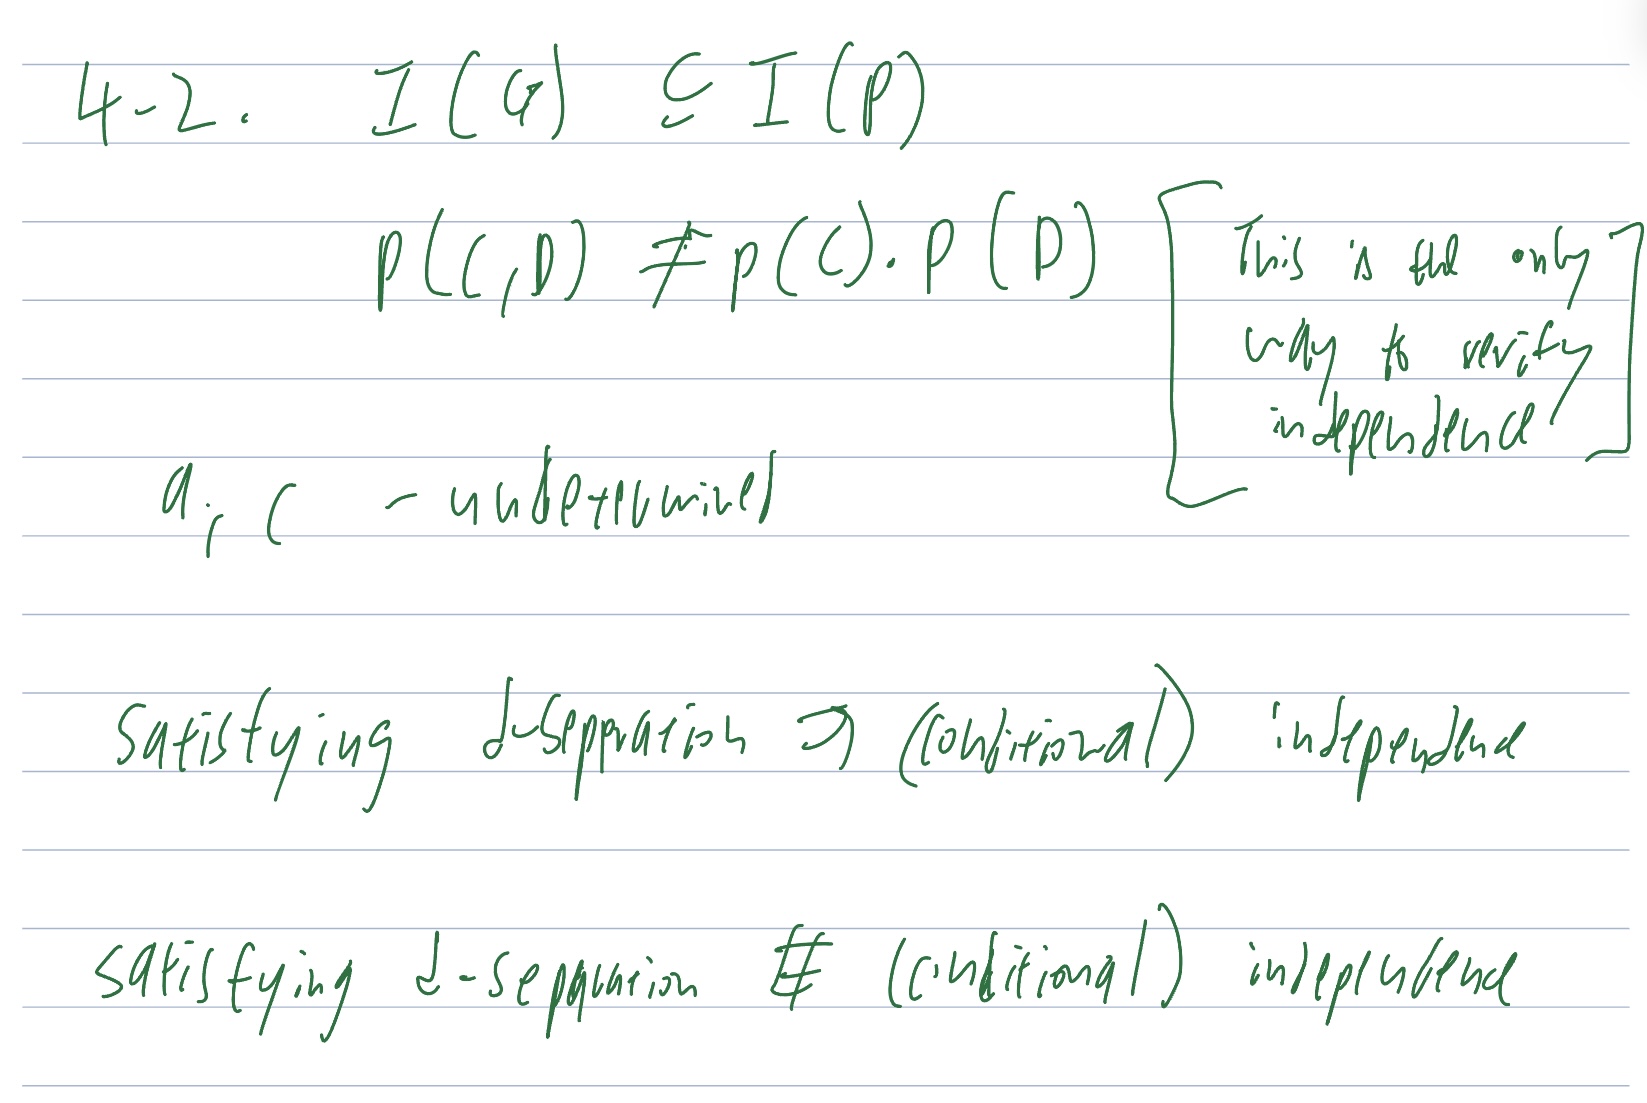 4-2. I(G) ⊆ I(P)
P(C,D) ≠ P(C).P(D) [This is the only
way to verify
independence]
a, c - undetermined
satisfying d-sepparation ⇒ (conditional) independence
satisfying d-separation ⇍ (conditional) independence